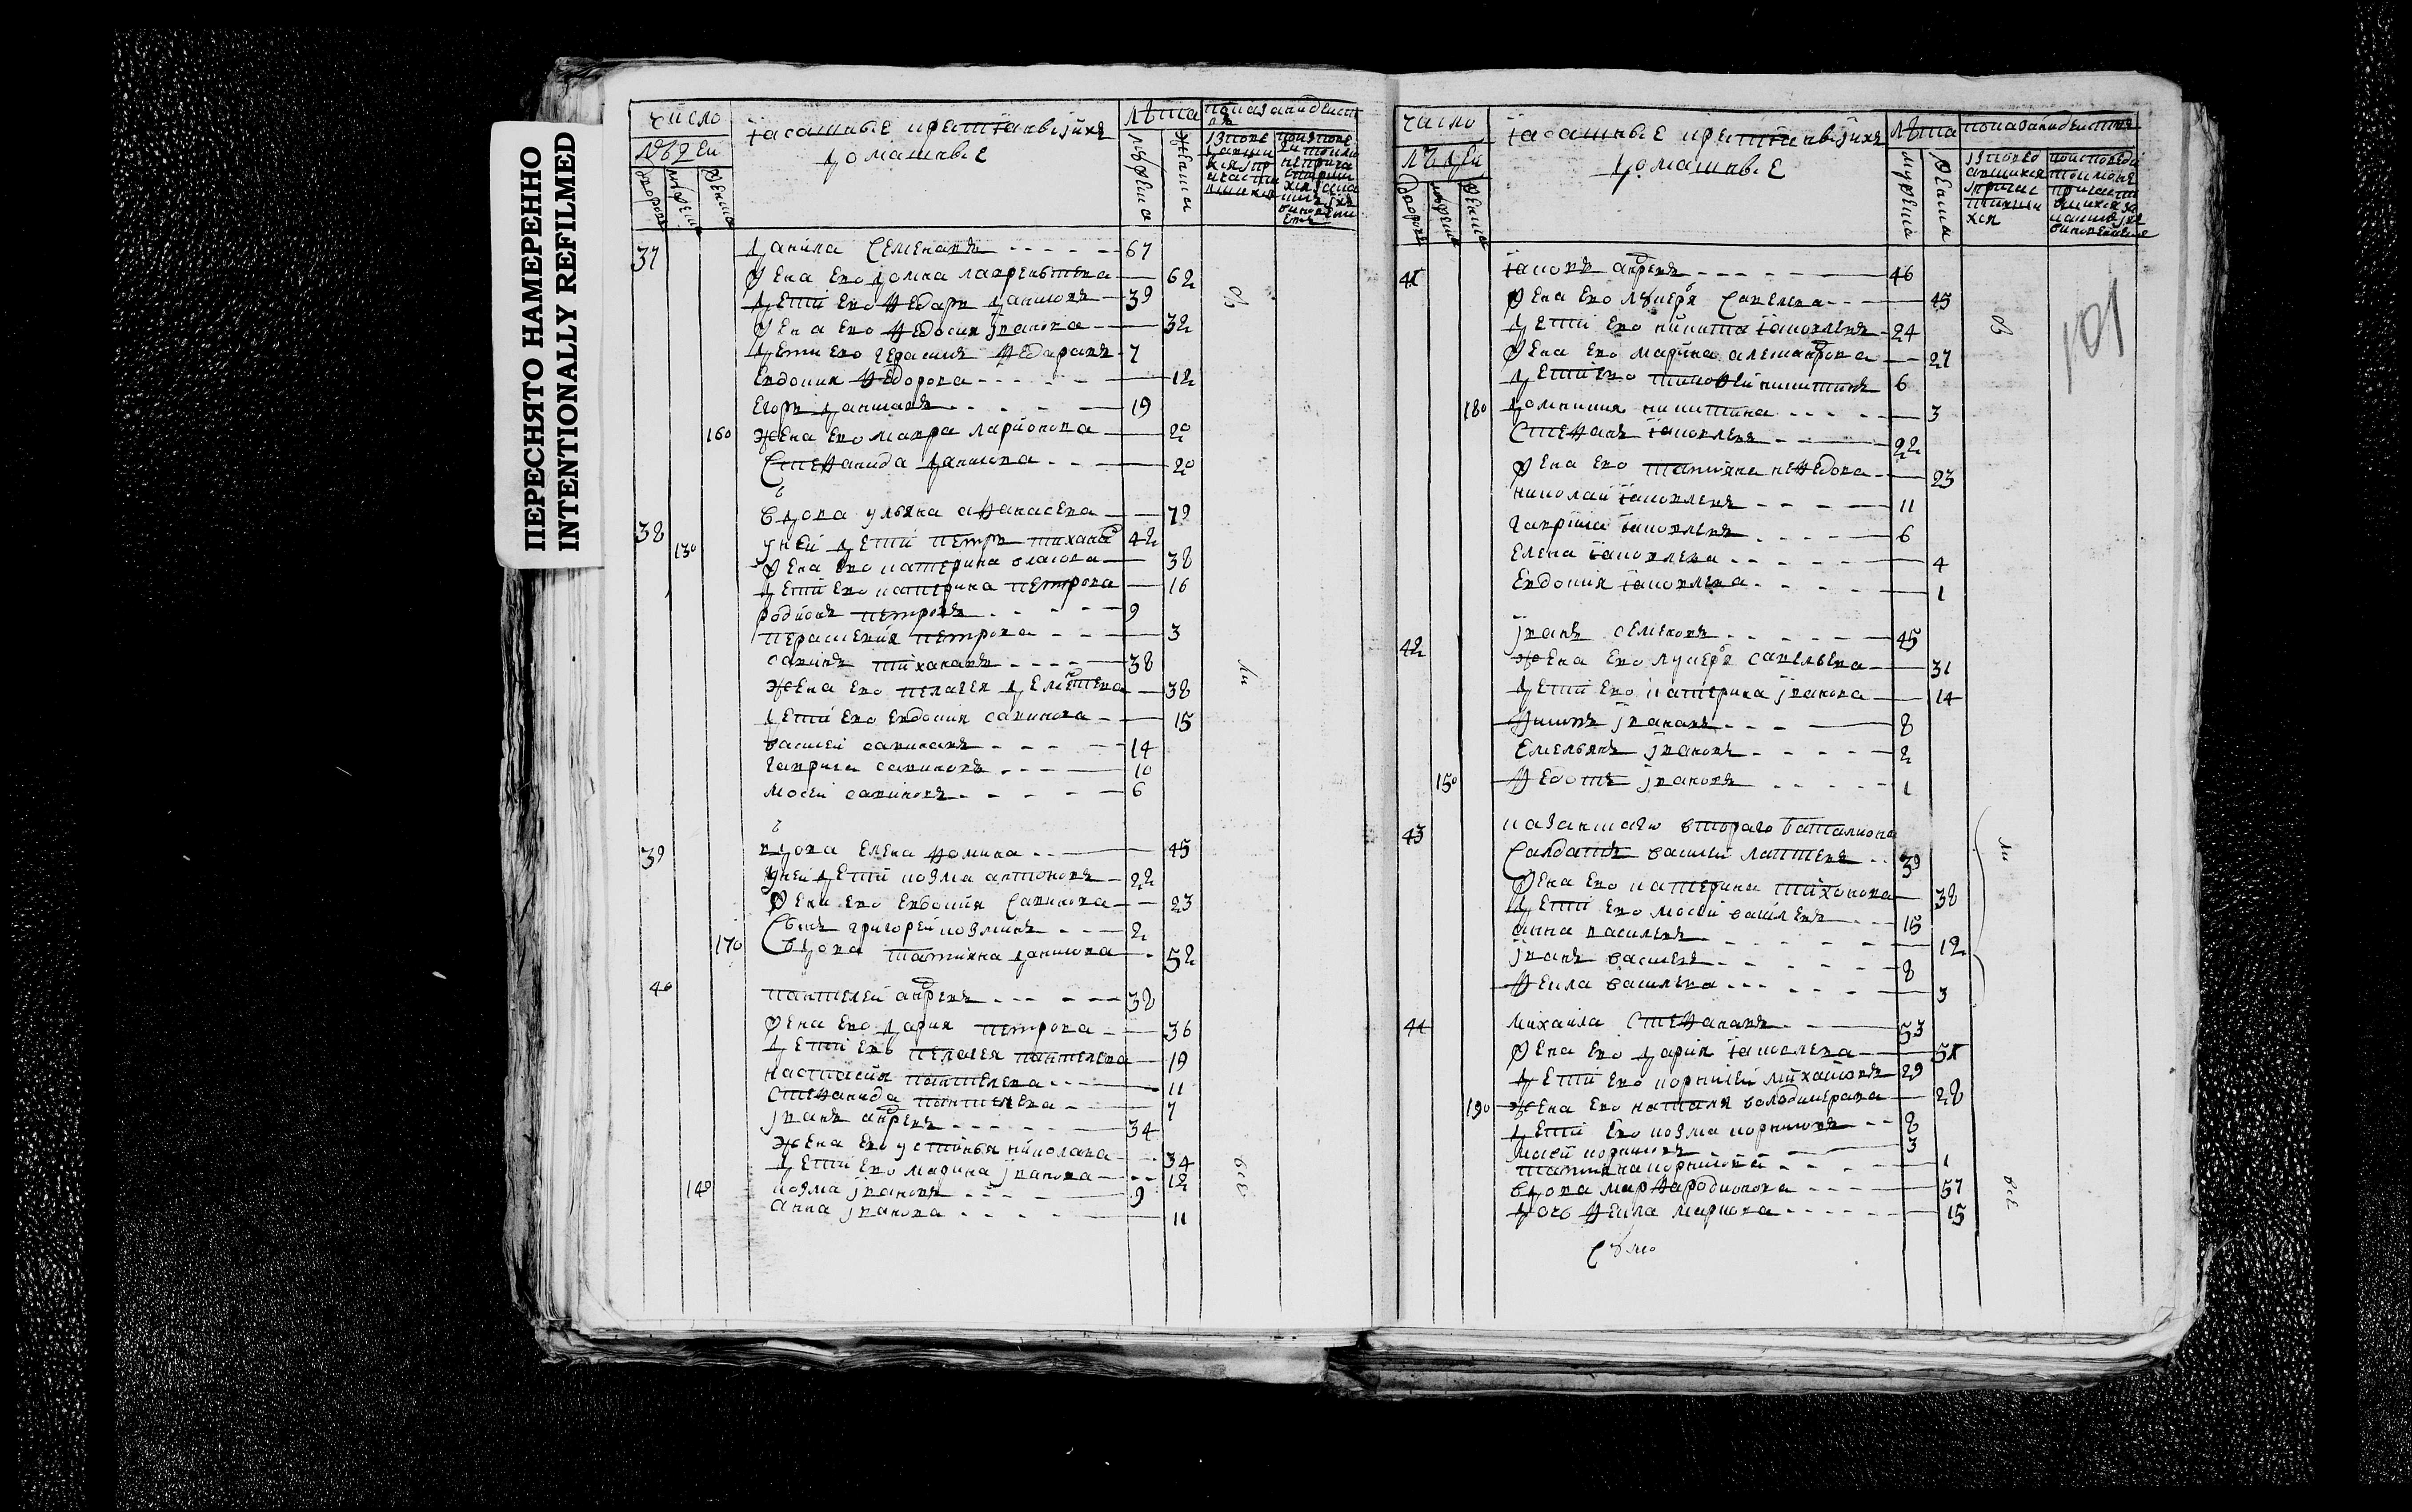 ПЕРЕСНЯТО НАМЕРЕННО
INTENTIONALLY REFILMED
число
людей
дворовъ
мужеска
женска
ясашные крестьяне и ихъ
домашные
лѣта
мужеска
женска
37 данила семеновъ 67
жена ево домна лаврентьева 62
дети ево федоръ даниловъ 39
жена ево федосия иванова 32
дети ево герасимъ федоровъ 7
евдокия федорова 12
егоръ даниловъ 19
160 жена ево мавра ларионова 20
степанида данилова 20
38 вдова ульяна афанасева 79
130 у ней дети петръ тихановъ 42
жена ево катерина власова 38
дети ево катерина петрова 16
родионъ петровъ 9
перасковия петрова 3
савинъ тихановъ 38
жена ево пелагея дементева 38
дети ево евдокия савинова 15
василей савиновъ 14
гаврила савиновъ 10
мосей савиновъ 6
39 вдова елена фомина 45
у ней дети козма антоновъ 22
жена ево евдокия савинова 23
сынъ григорей козминъ 2
170 вдова татияна данилова 52
40 пантелей андреевъ 38
жена ево дария петрова 36
дети евъ пелагея пантелева 19
настасия пантелева 11
степанида пантелева 7
иванъ андреевъ 34
жена ево устинья николава 34
дети ево марина иванова 12
140 козма ивановъ 9
анна иванова 11
число
людей
дворовъ
мужеска
женска
ясашные крестьяне и ихъ
домашные
лѣта
мужеска
женска
101
41 яковъ андреевъ 46
жена ево лукеря савелева 45
дети ево никита яковлевъ 24
жена ево марина александрова 27
дети ево тимофей никитинъ 6
180 домникия никитина 3
степанъ яковлевъ 22
жена ево татияна нефедова 23
николай яковлевъ 11
гаврила яковлевъ 6
елена яковлева 4
евдокия яковлева 1
42 иванъ семеновъ 45
жена ево лукеря савельева 31
дети ево катерина иванова 14
филипъ ивановъ 8
емельянъ ивановъ 2
150 федотъ ивановъ 1
43 казанскаго втораго баталиона
салдатъ василей лаптевъ 39
жена ево катерина тихонова 38
дети ево мосей василевъ 15
анна василева 12
иванъ василевъ 8
фекла василева 3
44 михаила степановъ 53
жена ево дария яковлева 51
дети ево корнилей михаиловъ 29
190 жена ево наталя володимерава 28
дети ево козма корниловъ 8
мосей корниловъ 3
татияна корнилова 1
вдова марфа родионова 57
дочь фекла маркова 15